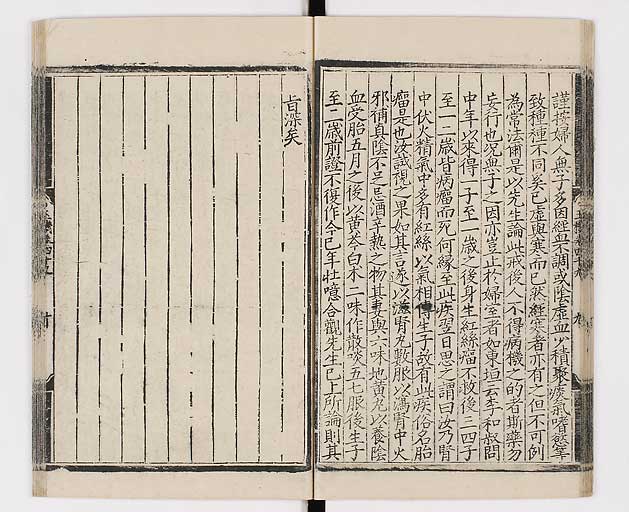 謹按婦人無子多因經血不調或陰虛血少積聚痰氣嗜慾等
致種種不同奚已虛與寒而已然經寒者亦有之但不可例
為常法爾是以先生論此戒後人不得病機之的者斯藥勿
妄行也况無子之因亦豈止於婦室者如東垣云李和叔問
中年以來得一子至一歲之後身生紅絲瘤不救後三四子
至一二歲皆病瘤而死何緣至此疾翌日思之謂曰汝乃腎
中伏火精氣中多有紅絲以氣相傳生子故有此疾俗名胎
瘤是也汝試視之果如其言遂以滋腎丸數服以瀉腎中火
邪補真陰不足忌酒辛熱之物其妻與六味地黃丸以養陰
血受胎五月之後以黃芩白朮二味作散啖五七服後生子
至二歲前證不復作今已年壯噫合觀先生已上所論則其
旨深矣